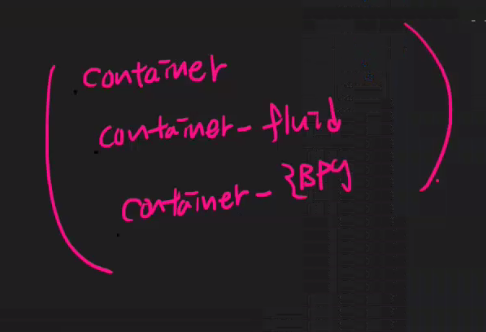 .container
.container-fluid
.container-{BP}